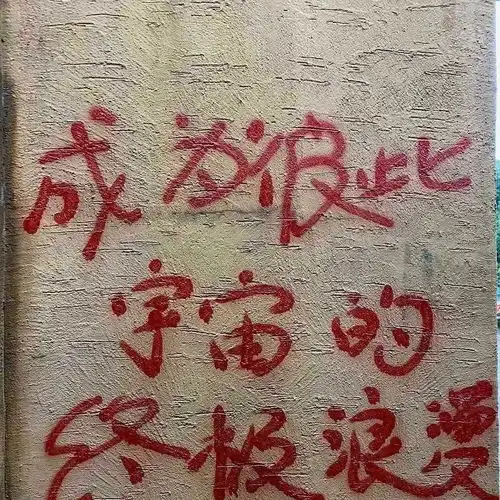 成为彼此
宇宙的
终极浪漫